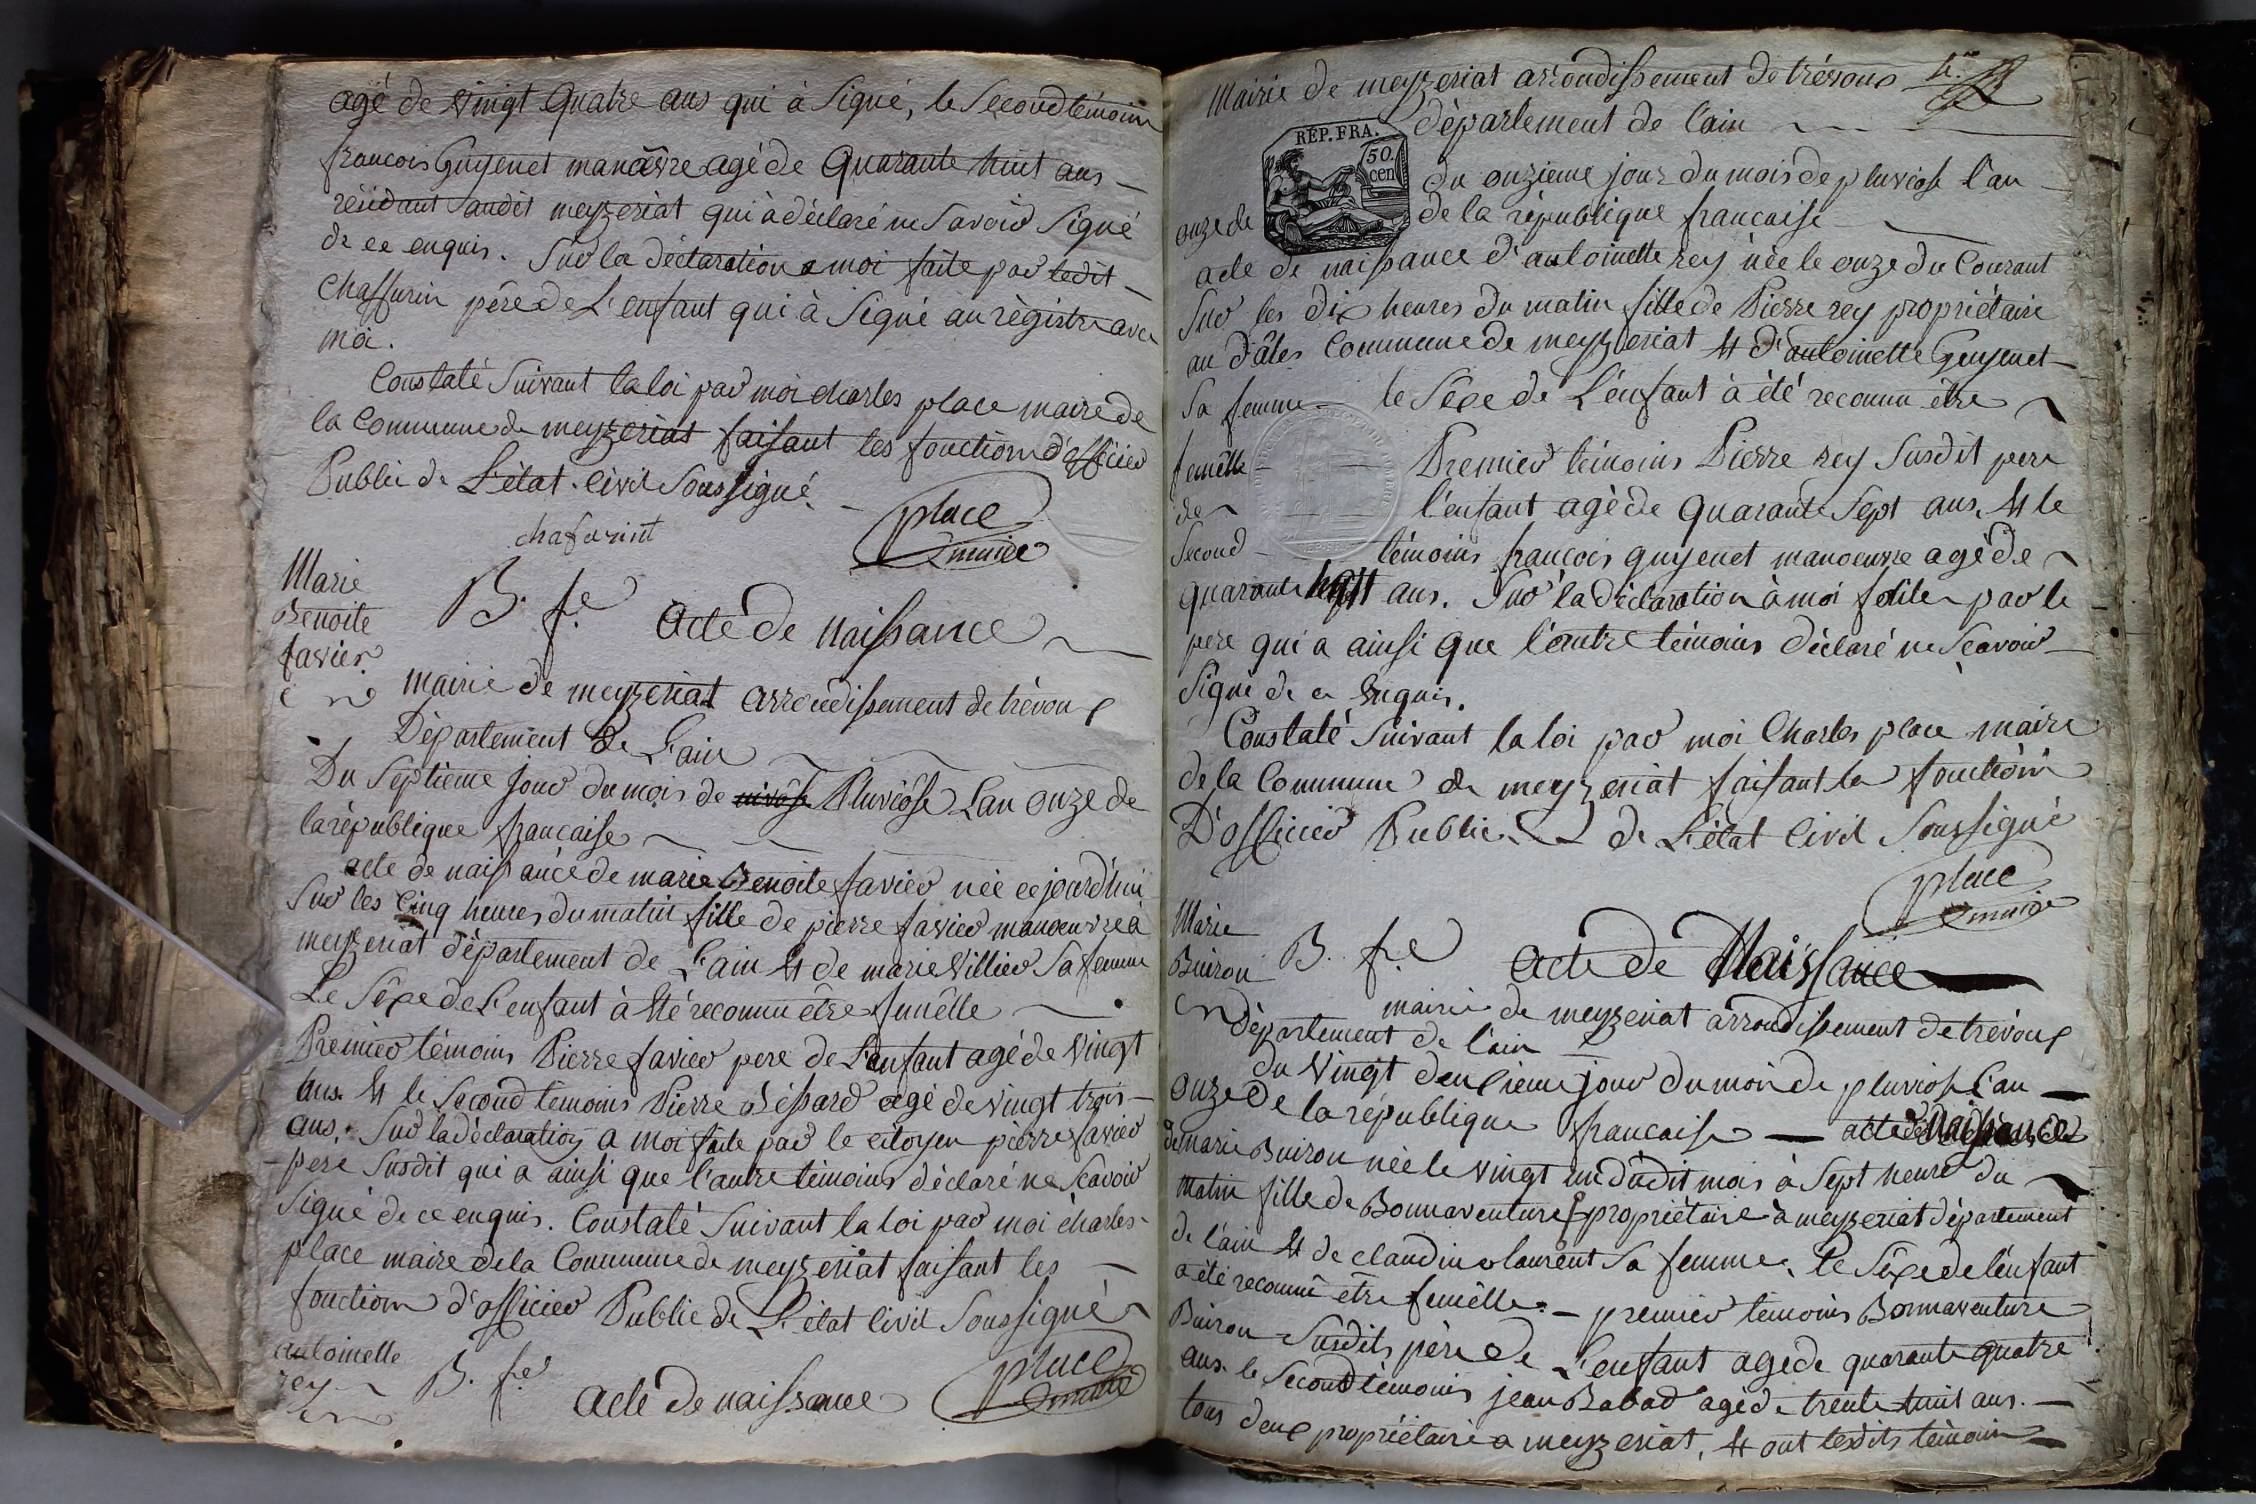 agé de vingt quatre ans qui à Signé, le Second témoin
francois Guyenet manœvre agé de quarante huit ans
résidant audit meyzeriat qui à déclaré ne Savoir Signé
de ce enquis. Sur la déclaration a moi faite par ledit
Chaffurin père de L'enfant qui à Signé au règistre avec
moi.
Constaté Suivant la loi par moi charles place maire de
la Commune de meyzeriat faisant les fonction d'officier
Public de L'état Civil Soussigné.
chafurint
place
maire
Marie
Benoite
favier
B. f.e
Acte de Naissance
Mairie de meyzeriat arrondissement de trévoux
Département de L'ain
Du Septieme jour du mois de nivôse Pluviôse L'an onze de
la république francaise
acte de naissance de marie Benoite favier née cejourd'hui
Sur les Cinq heures du matin fille de pierre favier manoeuvre à
meyzeriat département de L'ain et de marie Villier Sa femme
Le Sêxe de L'enfant à été reconnu être fumêlle
Premier témoins Pierre favier pere de L'enfant agé de vingt
ans. et le Second temoins Pierre agé de vingt trois
ans. Sur la déclaration a moi faite par le citoyen pierre favier
pere Susdit qui a ainsi que l'autre témoins déclaré ne Scavoir
Signé de ce enquis. Constaté Suivant la loi par moi charles
place maire de la Commune de meyzeriat faisant les
fonction d'officier Public de L'état Civil Soussigné
place
maire
antoinette
rey
B. f.e
Acte de naissance
Mairie de meyzeriat arrondissement de trévoux
département de l'ain
RÉP. FRA.
50.
cen
du onzieme jour du mois de pluviose l'an
onze de
de la république francaise
acte de naissance d'antoinette rey née le onze du Courant
Sur les dix heures du matin fille de Pierre rey propriétaire
au d'âles Commune de meyzeriat et d'antoinette Guyenet
Sa femme le Sêxe de L'enfant à été reconnu être
femêlle Premier témoins Pierre rey Susdit pere
de l'enfant agé de quarante Sept ans, et le
Second témoins françois guyenet manoeuvre agé de
quarante huit ans. Sur la déclaration à moi faite par le
pere qui a ainsi que l'autre témoins déclaré ne Scavoir
Signé de ce Enquis.
Constaté Suivant la loi par moi Charles place maire
de la Commune de meyzeriat faisant la fonction
D'officier Public de L'état Civil Soussigné
place
maire
Marie
Buiron
B. f.e
acte de Naissance
mairie de meyzeriat arrondissement de trévoux
département de l'ain
du vingt deuxieme jour du mois de pluviose L'an
onze de la république francaise acte de Naissance
de marie Buiron née le vingt un dudit mois à Sept heure du
matin fille de Bonnaventure propriétaire à meyzeriat département
de l'ain et de claudine laurent Sa femme, le Sêxe de l'enfant
a été reconnu être femêlle. premier témoins Bonnaventure
Buiron Susdits père de L'enfant agé de quarante quatre
ans. le Second témoins jean Babad agé de trente huit ans.
tous deux propriétaire a meyzeriat, et ont lesdits témoins